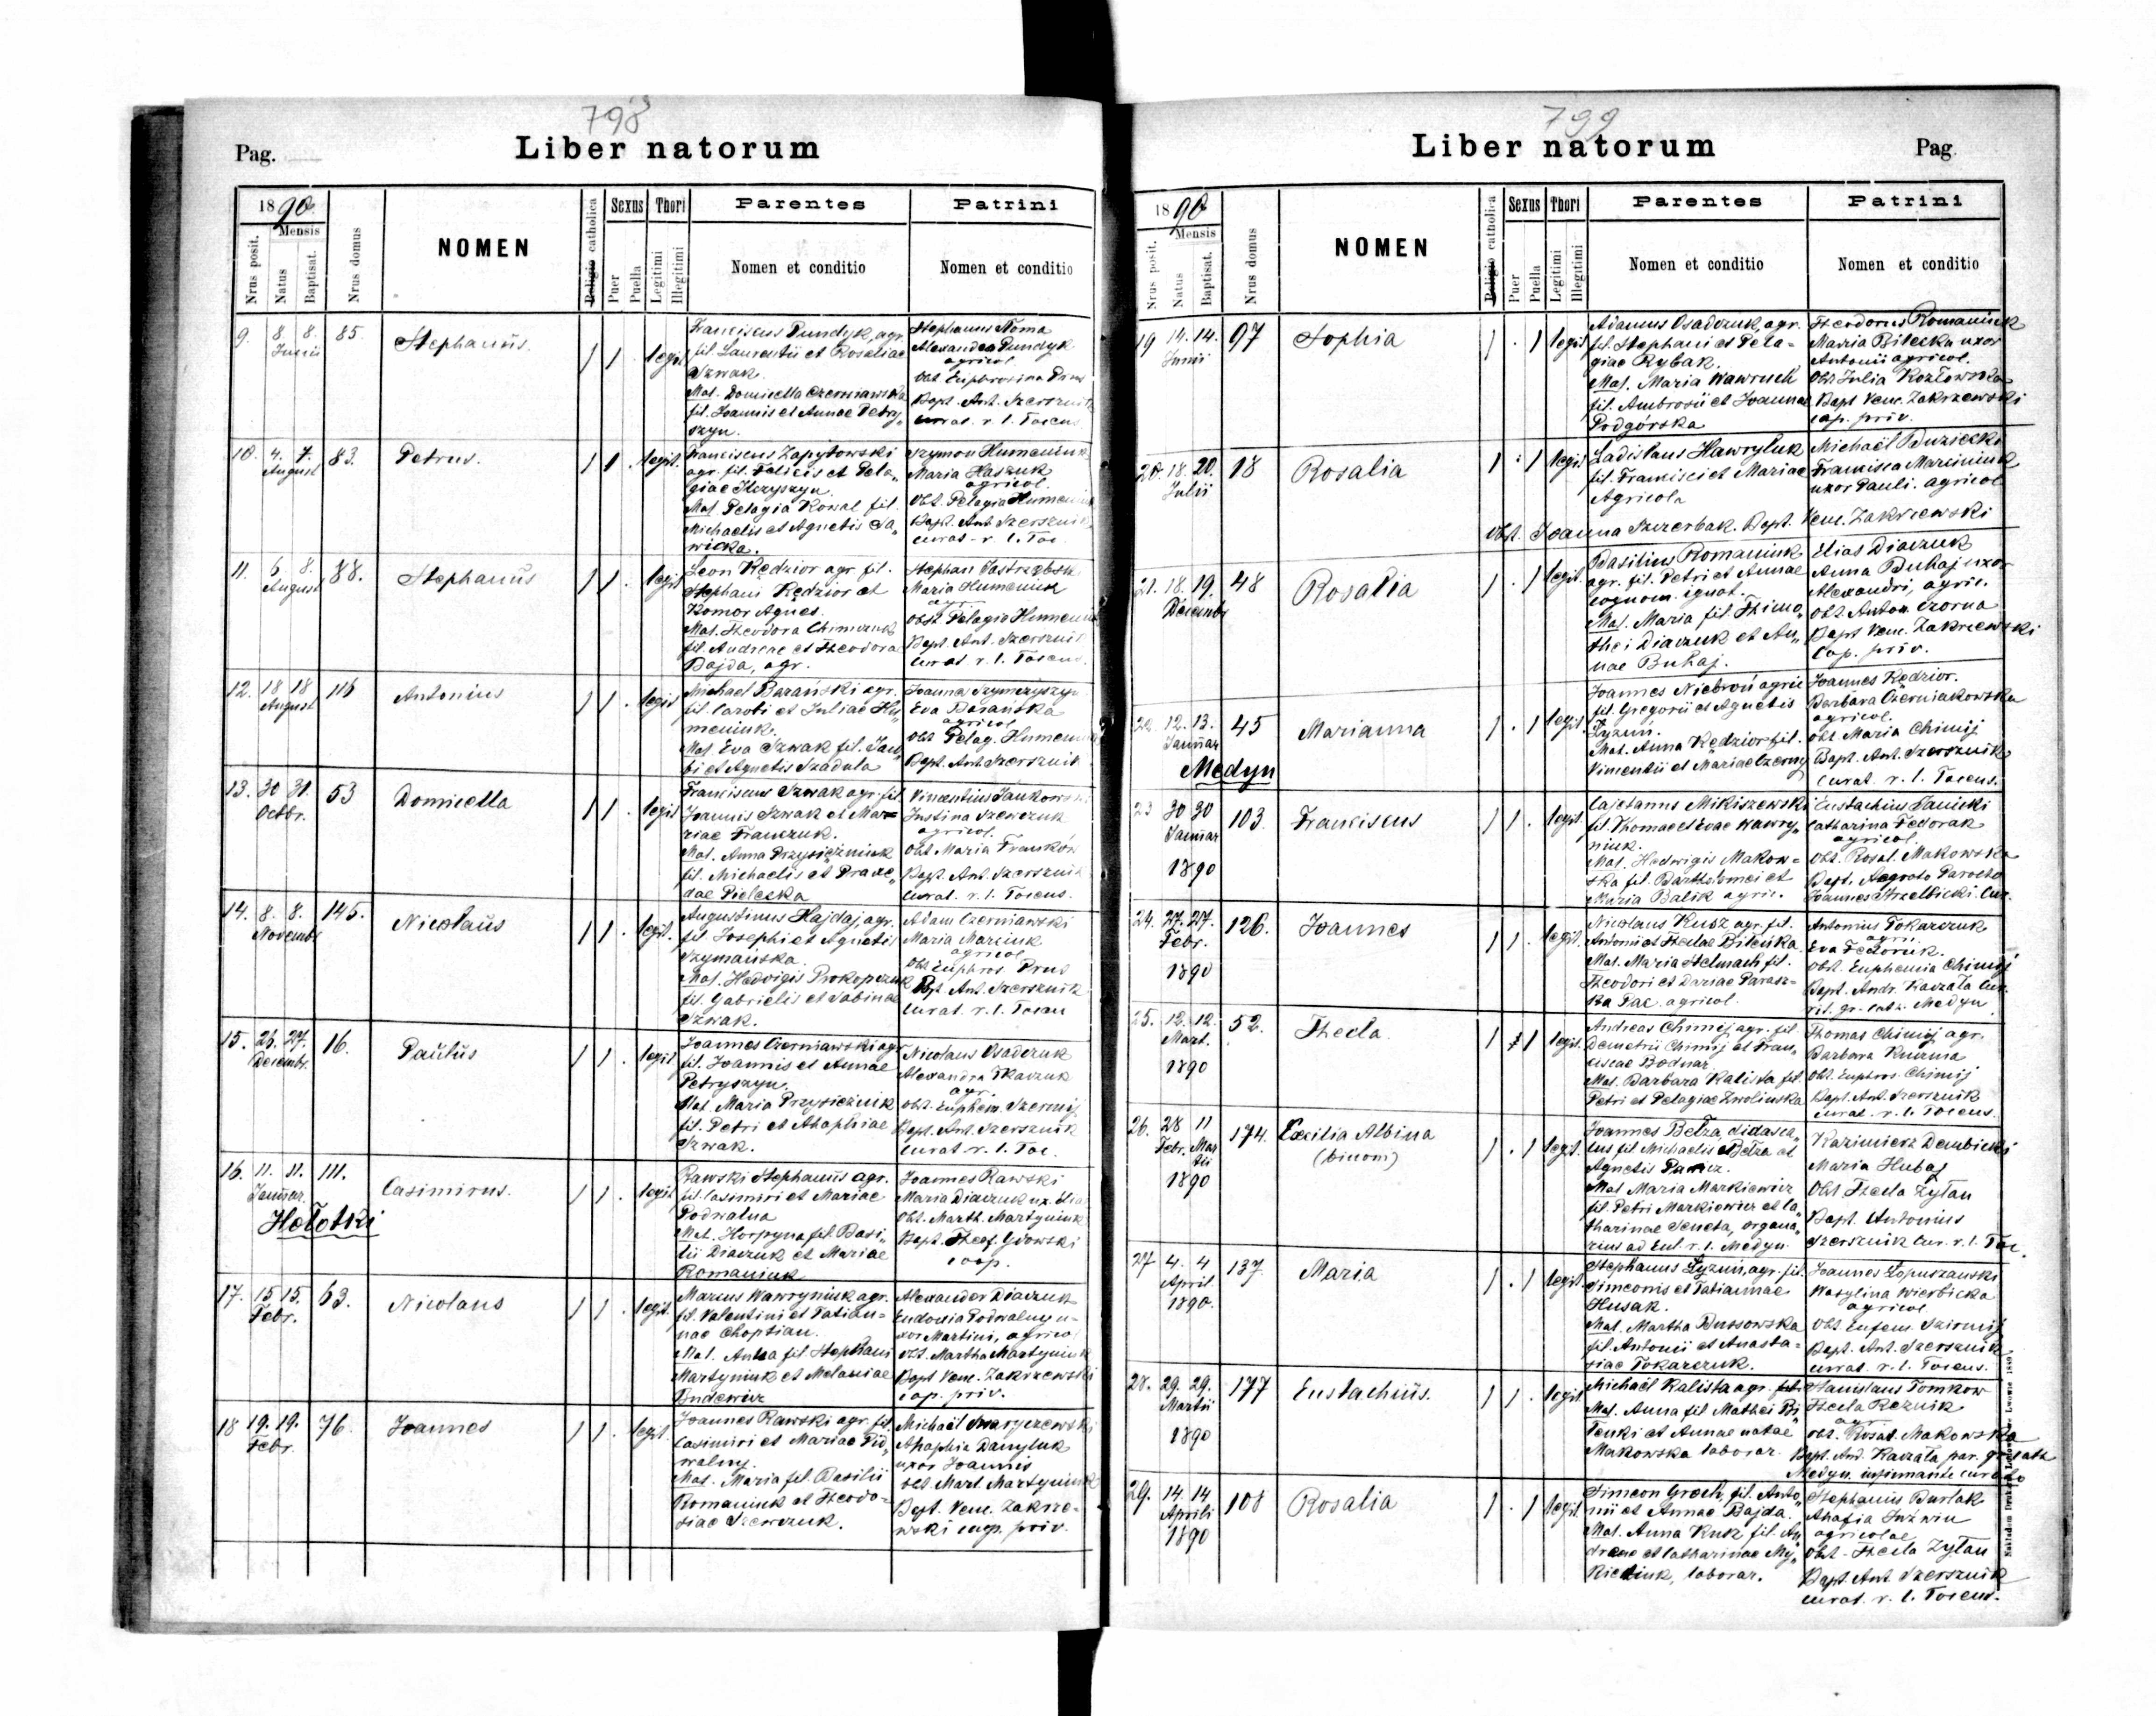 798
Liber natorum
Pag.
1890
Mensis
Nrus posit.
Natus
Baptisat.
Nrus domus
NOMEN
Religio catholica
Sexus
Puer
Puella
Thori
Legitimi
Illegitimi
Parentes
Nomen et conditio
Patrini
Nomen et conditio
9. 8. 8. 85. Stephanus. 1 1 . legit.
Junii
Franciscus Pundyk, agr.
fil. Laurentii et Rosaliae
Szwak.
Mat. Domicella Czerniawska
fil. Joannis et Annae Petry„
szyn.
Stephanus Noma
Alexandra Pundyk
agricol.
Obst. Euphrosina Prus
Bapt. Ant. Szersznik
curat. r. l. Tocus.
10. 4. 7. 83. Petrus. 1 1 . legit.
August
Franciscus Zapytowski
agr. fil. Felicis et Pela„
giae Hryszyn.
Mat. Pelagia Kowal fil.
Michaelis et Agnetis Sa„
wicka.
Szymon Humeniuk
Maria Haszuk
agricol.
Obst. Pelagia Humeniuk
Bapt. Ant. Szersznik
curat. r. l. Toc.
11. 6. 8. 88. Stephanus 1 1 . legit
August
Leon Kędzior agr. fil.
Stephani Kędzior et
Komor Agnes.
Mat. Theodora Chimczuk
fil. Andreae et Theodora
Bajda, agr.
Stephan Jastrzębski
Maria Humeniuk
agr.
Obst. Pelagia Humeniuk
Bapt. Ant. Szersznik
Curat. r. l. Tocus.
12. 18 18 116 Antonius 1 1 . legit
August
Michael Barański agr.
fil. Jacobi et Juliae Hu„
meniuk.
Mat. Eva Szwak fil. Jaco„
bi et Agnetis Szadula
Joanna Szymczyszyn
Eva Barańska
agricol.
Obst. Pelag. Humeniuk
Bapt. Ant. Szersznik
13. 30 31. 53 Domicella 1 1 . legit
Octbr.
Franciscus Szwak agr. fil.
Joannis Szwak et Ma=
riae Franczuk.
Mat. Anna Przysiężniuk
fil. Michaelis et Praxe„
dae Pielecka
Vincentius Jankowski
Justina Szewczuk
agricol.
Obst. Maria Franków
Bapt. Ant. Szersznik
Curat. r. l. Tocus.
14. 8. 8. 145. Nicolaus 1 1 . legit.
Novembr.
Augustinus Hajdaj, agr.
fil. Josephi et Agnetis
Szymańska.
Mat. Hedvigis Prokopczuk
fil. Gabrielis et Sabinae
Szwak.
Adam Czerniawski
Maria Marciuk
agricol.
Obst. Euphros. Prus
Bapt. Ant. Szersznik
Curat. r. l. Tocus
15. 26. 27. 16. Paulus 1 1 . legit
Decembr.
Joannes Czerniawski agr.
fil. Joannis et Annae
Petryszyn.
Mat. Maria Przysiężniuk
fil. Petri et Ahaphiae
Szwak.
Nicolaus Osadczuk
Alexandra Tkaczuk
agr.
Obst. Euphem. Szermij
Bapt. Ant. Szersznik
Curat r. l. Toc.
16. 11. 11. 111. Casimirus. 1 1 . legit
Januar.
Hołotki
Rawski Stephanus agr.
fil. Casimiri et Mariae
Podwalna
Mat. Horpyna fil. Basi„
lii Diaczuk et Mariae
Romaniuk
Joannes Rawski
Maria Diaczuk ux. Elia
Obst. Marth. Martyniuk
Bapt. Theof. Głowski
coop.
17. 15 15. 63. Nicolaus 1 1 . legit.
Febr.
Marcus Wawryniuk agr.
fil. Valentini et Tatian=
nae Choptian.
Mat. Anna fil. Stephani
Martyniuk et Melaniae
Budewicz
Alexander Diaczuk
Eudoxia Podwalny u=
xor Martini, agricol
Obst. Martha Martyniuk
Bapt Venc. Zakrzewski
cap. priv.
18 19. 19. 76. Joannes 1 1 . legit.
Febr.
Joannes Rawski agr. fil.
Casimiri et Mariae Pod„
walny.
Mat. Maria fil. Basilii
Romaniuk et Theodo=
siae Szewczuk.
Michaël Skaryczewski
Ahaphia Danyluk
uxor Joannis
Obst Mart. Martyniuk
Bapt. Venc. Zakrze=
wski cap. priv.
799
Liber natorum
Pag.
1890
Mensis
Nrus posit.
Natus
Baptisat.
Nrus domus
NOMEN
Religio catholica
Sexus
Puer
Puella
Thori
Legitimi
Illegitimi
Parentes
Nomen et conditio
Patrini
Nomen et conditio
19 14. 14. 97 Sophia 1 . 1 legit
Junii
Adamus Osadczuk, agr.
fil. Stephani et Pela=
giae Rybak.
Mat. Maria Wawruch
fil. Ambrosii et Joannae
Podgórska
Theodorus Romaniuk
Maria Bilecka uxor
Antonii agricol.
Obst Julia Kozłowska
Bapt Venc. Zakrzewski
cap. priv.
20. 18. 20. 18 Rosalia 1 . 1 legit
Julii
Ladislaus Hawryluk
fil. Francisci et Mariae
Agricola
Michaël Buziecki
Francisca Marciniuk
uxor Pauli. agricol
Obst. Joanna Szczerbak. Bapt. Venc. Zakrzewski
21. 18. 19. 48 Rosalia 1 . 1 legit.
Decembr
Basilius Romaniuk
agr. fil. Petri et Annae
cognom. ignot.
Mat. Maria fil. Thimo„
thei Diaczuk et An„
nae Buhaj.
Elias Diaczuk
Anna Buhaj uxor
Alexandri, agric.
Obst. Anton. Czorna
Bapt Venc. Zakrzewski
Cap. priv.
22. 12. 13. 45 Marianna 1 . 1 legit.
Januar
Medyn
Joannes Niebroń agric
fil. Gregorii et Agnetis
Łyzuń.
Mat. Anna Kędzior fil.
Vincentii et Mariae Czerny
Joannes Kędzior.
Barbara Czerniakowska
agricol.
Obst Maria Chimij
Bapt. Ant. Szersznik
Curat. r. l. Tocus.
23 30 30 103. Franciscus 1 1 . legit.
Januar
1890
Cajetanus Mikiszewski
fil. Thomae et Evae Wawry„
niuk.
Mat. Hedwigis Makow=
ska fil. Bartholomei et
Maria Balik agric.
Eustachius Sanicki
Catharina Fedorak
agricol.
Obst. Rosal. Makowska
Bapt. Aegroto Parocho
Joannes Strzelbicki Cur.
24. 27. 27. 126. Joannes 1 1 . legit.
Febr.
1890
Nicolaus Kusz agr. fil.
Antonii et Theclae Bileńka.
Mat. Maria Stelmach fil.
Theodori et Dariae Parasz=
ka Pac. agricol.
Antonius Tokarczuk
agri.
Eva Fedoruk.
Obst. Euphemia Chimij
Bapt. Andr. Kaczała Cur.
rit. gr. cath. Medyn.
25. 12. 12. 52. Thecla 1 . 1 legit.
Mart.
1890
Andreas Chimij agr. fil.
Demetrii Chimij et Fran„
ciscae Bodnar
Mat. Barbara Kalista fil.
Petri et Pelagiae Zwolinska
Thomas Chimij agr.
Barbara Kuzma
Obst. Euphros. Chimij
Bapt. Ant. Szersznik
curat. r. l. Tocus.
26. 28 11 174. Cæcilia Albina 1 . 1 legit.
Febr. Mar
tii (binom)
1890
Joannes Betza, didasca„
lus fil Michaelis Betza et
Agnetis
Mat Maria Markiewicz
fil. Petri Markiewicz et Ca„
tharinae Seneta, organa„
rius ad Eccl. r. l. Medyn.
Kazimierz Dembicki
Maria Hubaj
Obst Thecla Żytan
Bapt. Antonius
Szersznik Cur. r. l. Toc.
27 4. 4 137. Maria 1 . 1 legit
April
1890.
Stephanus Łyzuń, agr. fil.
Simeonis et Tatiannae
Husak.
Mat. Martha Bussowska
fil. Antonii et Anasta=
siae Tokarczuk.
Joannes Łopuszanski
Wasylina Wierbicka
agricol
Obst Eufem. Sziomij
Bapt. Ant. Szersznik
curat. r. l. Tocus.
28. 29. 29. 177 Eustachius. 1 1 . legit
Martii
1890
Michaël Kalista agr. fil.
Mat. Anna fil Mathei Bi„
łenki et Annae natae
Makowska laborar.
Stanislaus Tomkow
Thecla Reznik
agr.
Obst. Rosal. Makowska
Bapt. And. Kaczała par. gr. cath
Medyn. infirmante curato
29. 14. 14 108 Rosalia 1 . 1 legit
Aprili
1890
Simeon Groch, fil. Anto„
nii et Annae Bajda.
Mat. Anna Kuk fil. An„
dreae et Catharinae My„
kietiuk, laborar.
Stephanus Burlak
Ahafia Juzwin
agricolae
Obst. Thecla Żytan
Bapt. Ant Szersznik
curat. r. l. Tocus.